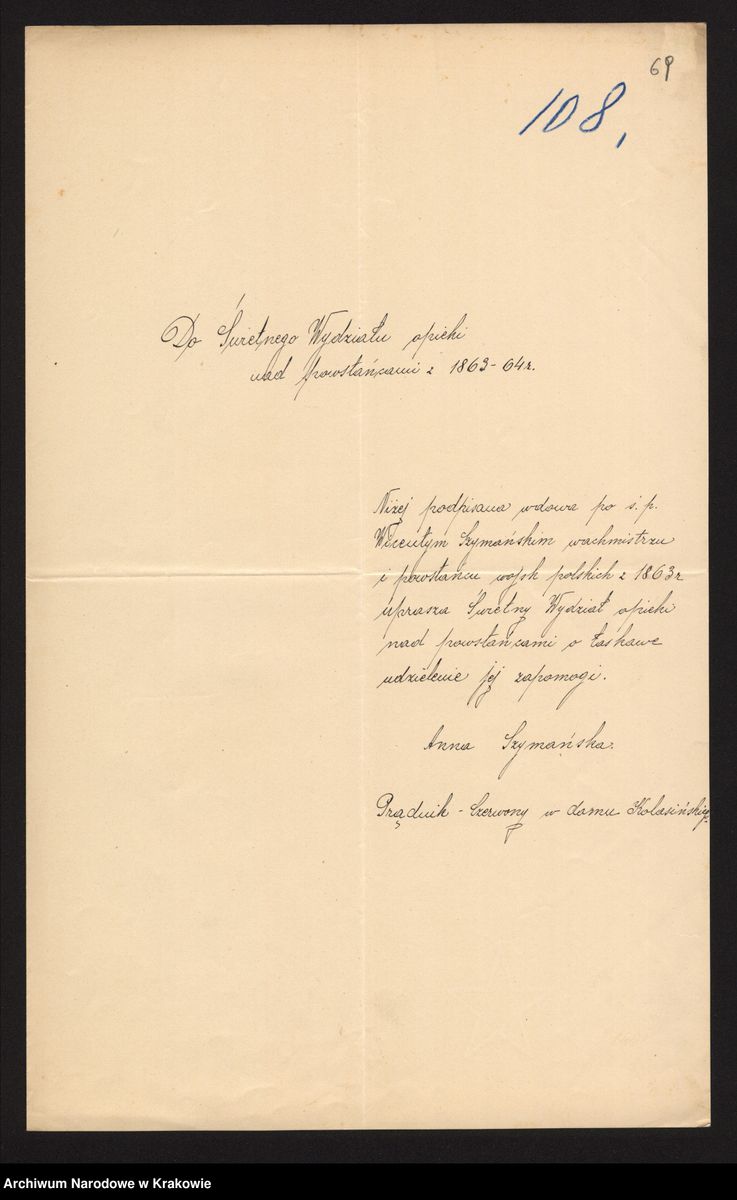 69
108,
Do Świetnego Wydziału opieki
nad powstańcami z 1863-64 r.
Niżej podpisana wdowa po ś. p.
Wicentym Szymańskim wachmistrzu
i powstańcu wojsk polskich z 1863 r
uprasza Świetny Wydział opieki
nad powstańcami o łaskawe
udzielenie jej zapomogi.
Anna Szymańska.
Prądnik - Czerwony w domu
Archiwum Narodowe w Krakowie